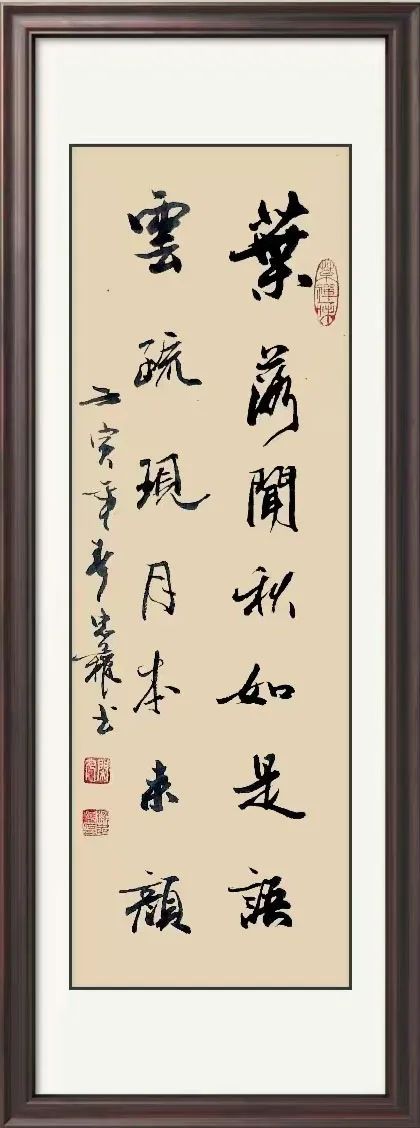 葉落聞秋如是語
雲疏現月本来顏
壬寅年春忠權书